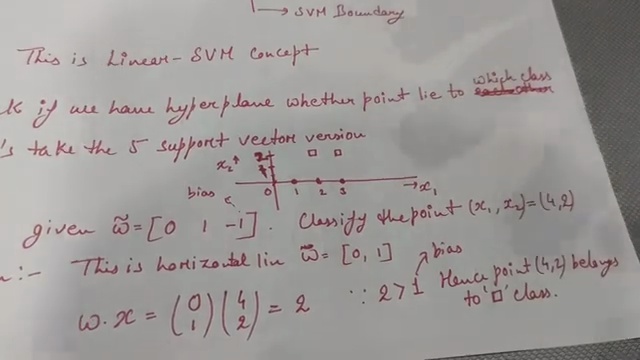 → SVM Boundary
This is Linear-SVM Concept
if we have hyperplane whether point lie to which class
take the 5 support vector version
x₂↑ 2 1
0 1 2 3 → x₁
bias
given w̃ = [0 1 -1]. Classify the point (x₁, x₂) = (4,2)
:- This is horizontal lin w̃ = [0, 1] bias
w.x = (0 1) (4 2) = 2 ∵ 2 > 1 Hence point (4,2) belongs
to '□' class.